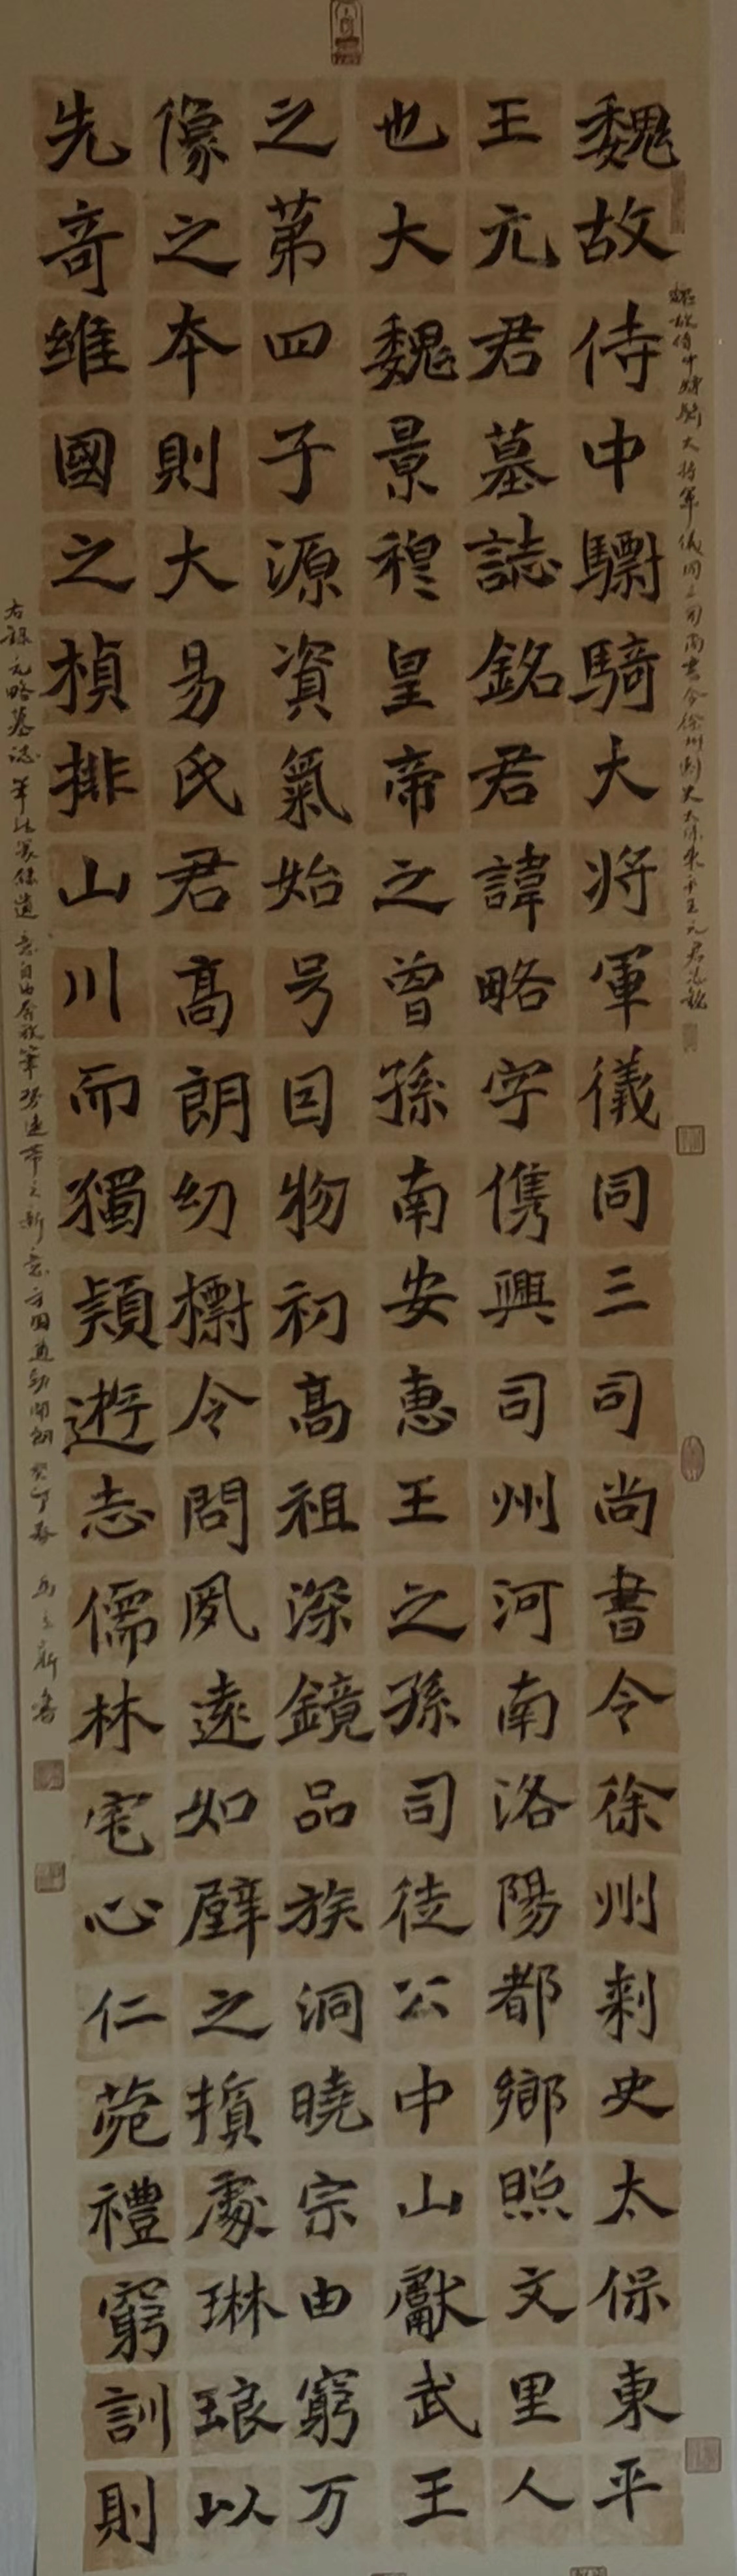 魏故侍中驃騎大將軍儀同三司尚書令徐州刺史太保東平
王元君墓誌銘君諱略字儁興司州河南洛陽都鄉照文里人
也大魏景穆皇帝之曾孫南安惠王之孫司徒公中山獻武王
之苐四子源資氣始号因物初高祖深鏡品族洞曉宗由窮万
像之本則大易氏君高朗幼摽令問夙遠如璧之損處琳琅以
先奇維國之楨排山川而獨穎遊志儒林宅心仁苑禮窮訓則
魏故侍中驃騎大將軍儀同三司尚書令徐州刺史太保東平王元君誌銘
右錄元略墓誌筆法